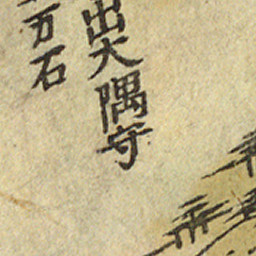 出大隅守
万石